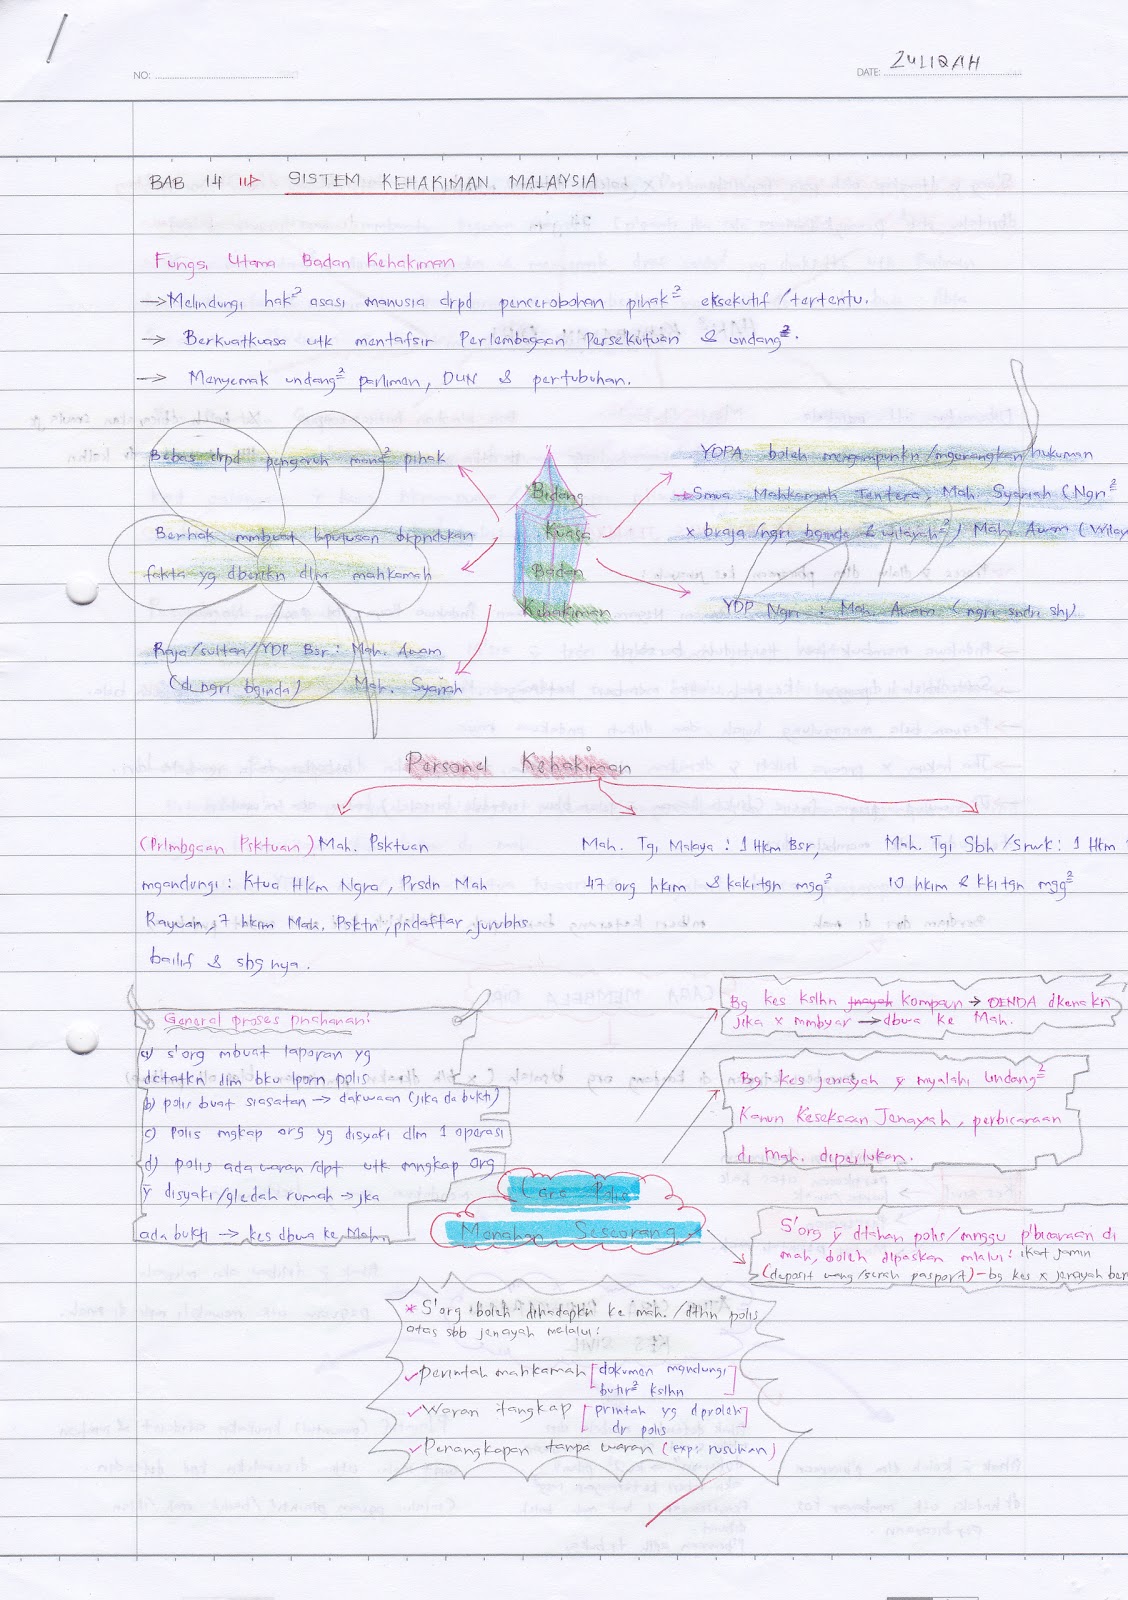 NO:
DATE: ZULIQAH
BAB 14 SISTEM KEHAKIMAN MALAYSIA
Fungsi Utama Badan Kehakiman
→ Melindungi hak² asasi manusia drpd pencerobohan pihak² eksekutif / tertentu.
→ Berkuatkuasa utk mentafsir Perlembagaan Persekutuan & undang².
→ Menyemak undang² parlimen, DUN & pertubuhan.
Bebas drpd pengaruh mana² pihak
Berhak mmbuat kputusan brpndukan
fakta yg dberikn dlm mahkamah
Raja/sultan/YDP Bsr : Mah. Awam
(di ngri bginda) Mah. Syariah
Bidang
Kuasa
Badan
Kehakiman
YDPA boleh mengampunkn/mgurangkan hukuman
→ Smua Mahkamah Tentera, Mah. Syariah (Ngri²
x braja/ngri bginda & wilayah²) Mah. Awam (Wilay
YDP Ngri : Mah. Awam (ngri sndri shj)
Personel Kehakiman
(Prlmbgaan Psktuan) Mah. Psktuan
mgandungi : Ktua Hkm Ngra, Prsdn Mah
Rayuan, 7 hkim Mah. Psktn, pndaftar, jurubhs
bailif & sbgnya.
Mah. Tgi Malaya : 1 Hkm Bsr,
47 org hkim & kakitgn msg²
Mah. Tgi Sbh / Srwk : 1 Hkm
10 hkim & kkitgn msg²
General proses pnahanan:
a) s'org mbuat laporan yg
dctatkn dlm bku lporn polis
b) polis buat siasatan → dakwaan (jika da bukti)
c) Polis mgkap org yg disyaki dlm 1 operasi
d) polis ada waran /dpt utk mngkap org
ȳ disyaki /gledah rumah → jka
ada bukti → kes dbwa ke Mahn
Bg kes kslhn kompaun → DENDA dkenakn
jika x mmbyar → dbwa ke Mah.
Bg kes jenayah ȳ myalahi Undang²
Kanun Keseksaan Jenayah, perbicaraan
di mah. diperlukan.
Cara Polis
Menahan Seseorang
S'org ȳ dtahan polis/mnggu p'bicaraan di
mah, boleh dipaskan mlalui : ikat jamin
(deposit wang/serah pasport) - bg kes x jenayah ber
* S'org boleh dihadapkn ke mah. / dthn polis
atas sbb jenayah melalui:
✓ perintah mahkamah [dokumen mgndungi
butir² kslhn]
✓ Waran tangkap [printah yg dproleh
dr polis]
✓ Penangkapan tanpa waran (exp: rusuhan)